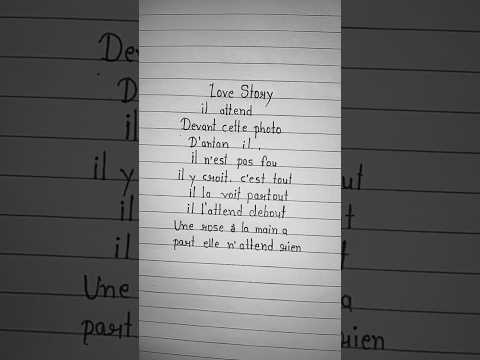 Love Story
il attend
Devant cette photo
D'antan il .
il n'est pas fou
il y croit. c'est tout
il la voit partout
il l'attend debout
Une rose à la main a
part elle n'attend rien